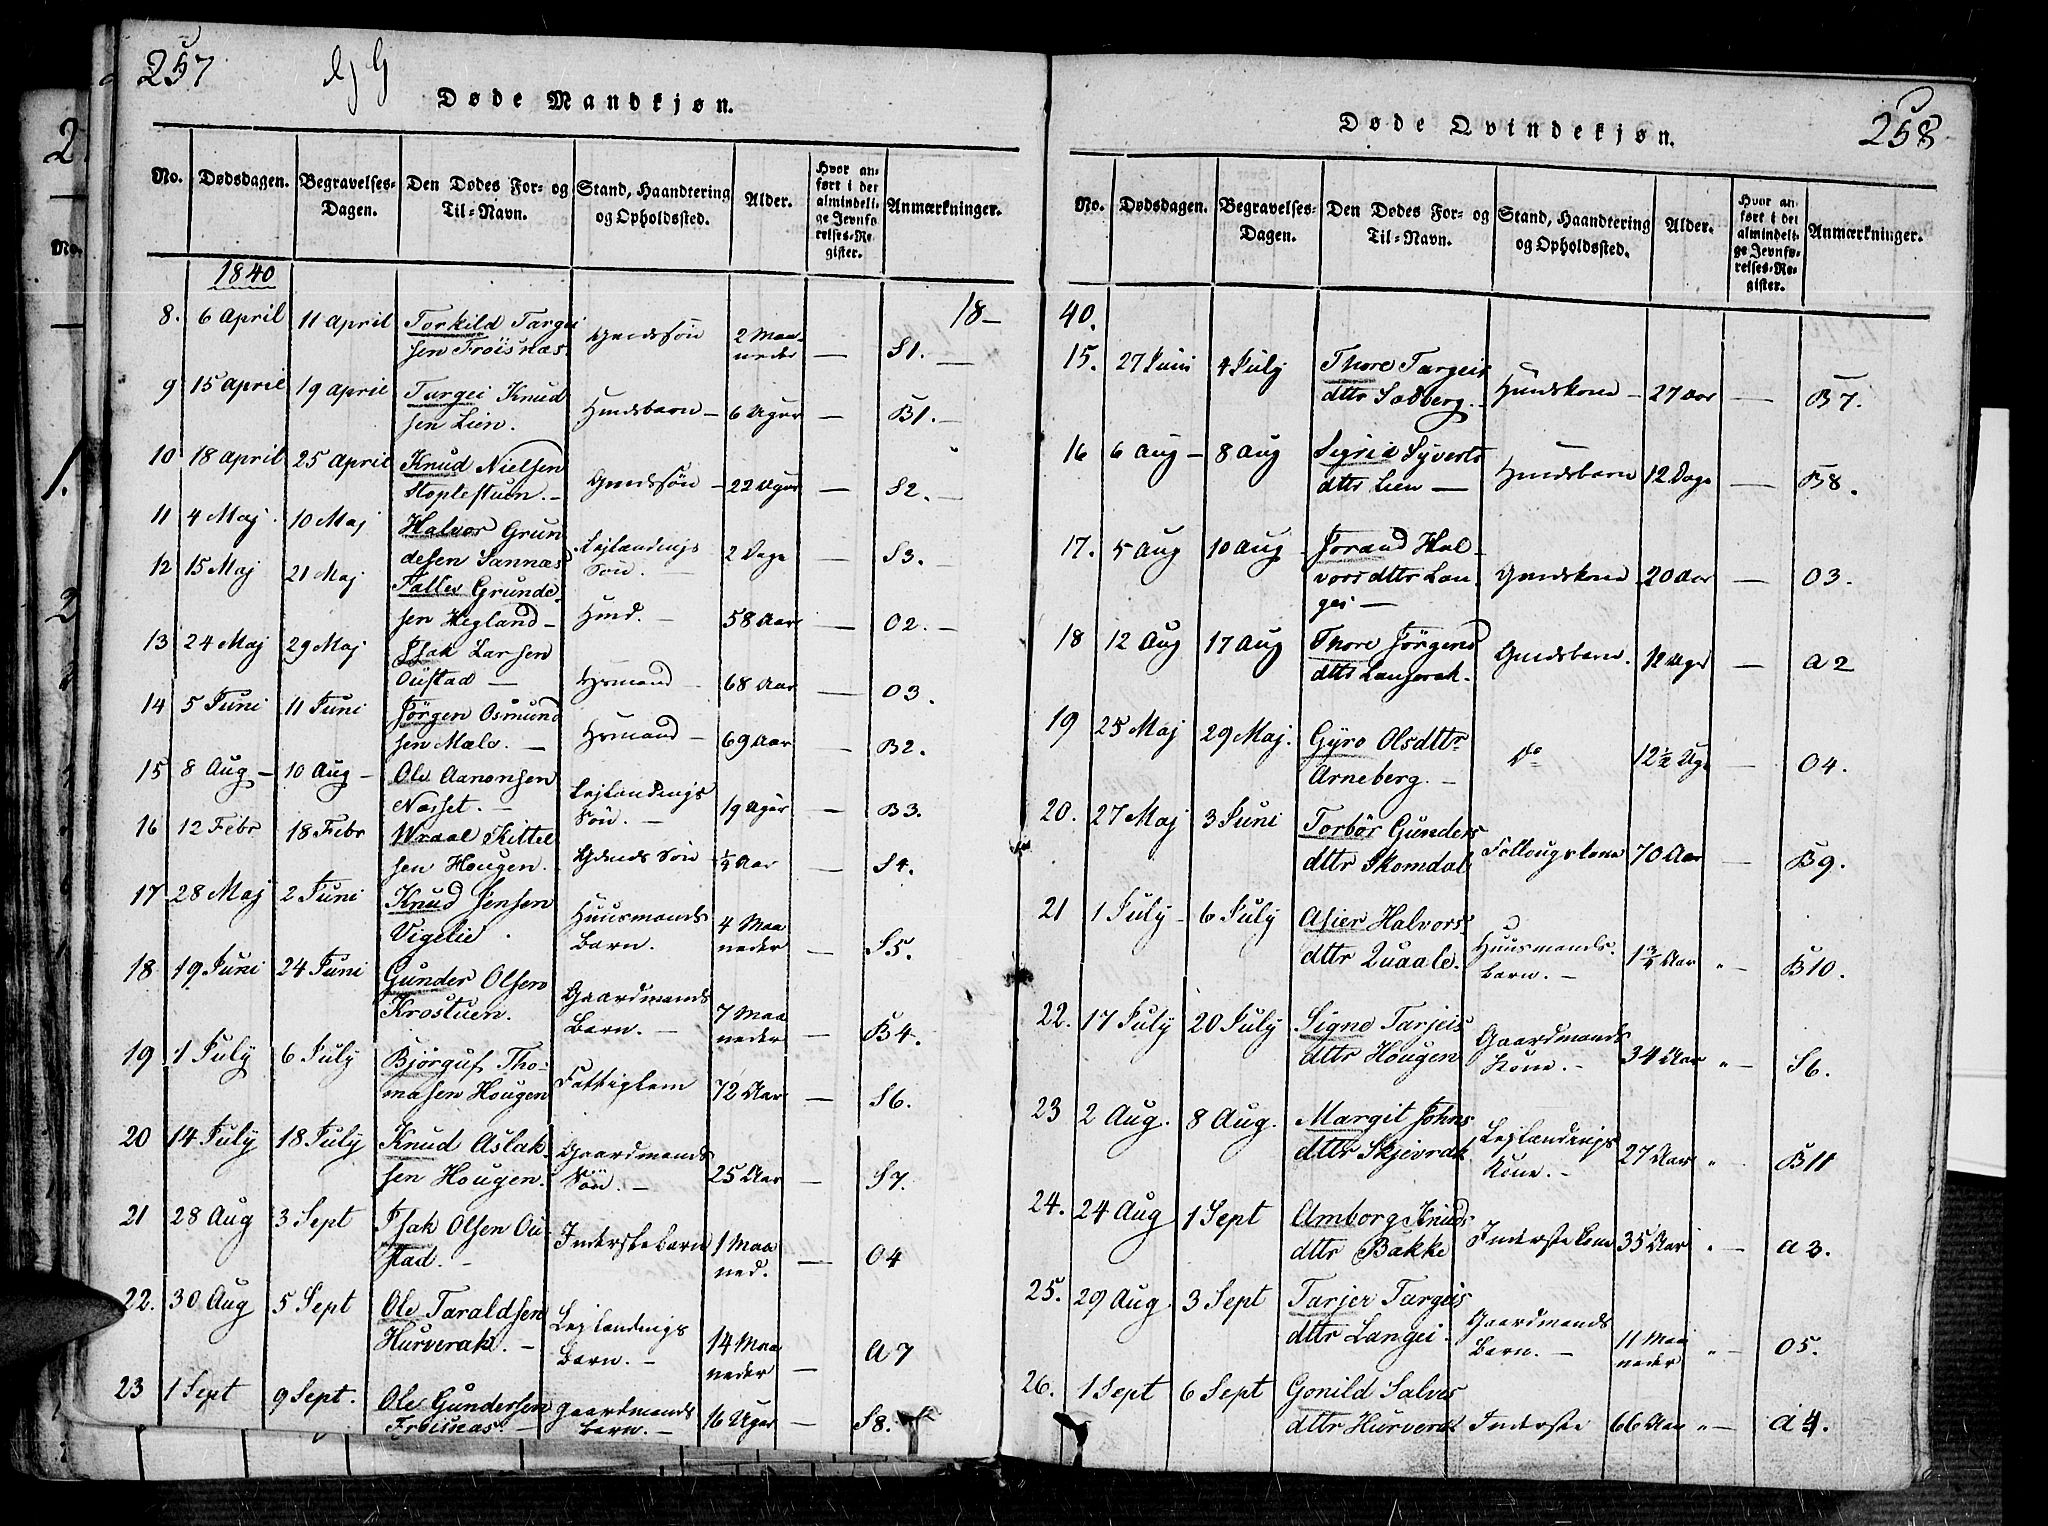 257
Døde Mandkjøn.
No. Dødsdagen. Begravelses-Dagen. Den Dødes For- og Til-Navn. Stand, Haandtering og Opholdssted. Alder. Hvor anført i det almindelige Jevnførelses-Register. Anmærkninger.
1840
18-
8. 6 April 11 April Torkild Targei
sen Froisnæs. Gmdssön 2 Maa-
neder — S1. —
9 15 April 19 April Targei Knud
sen Lien. Hmdsbarn — 6 Uger — B1. —
10 18 April 25 April Knud Nielsen
Stoplestuen. — Gmdssön — 22 Uger — S2. —
11 4 Maj. 10 Maj Halvor Grun
desen Sannæs Lejlændings
Sön. 2 Dage — S3. —
12 15 Maj 21 Maj Tallev Grunde-
sen Hegland — Hmd. — 58 Aar — O2. —
13 24 Maj 29 Maj Isak Larsen
Oustad — Hsmand — 68 Aar — O3.
14 5 Juni 11 Juni Jörgen Osmund
sen Mælo. — Hsmand — 69 Aar — B2.
15 8 Aug — 10 Aug — Ole Aanonsen
Nosset. — Lejlændings
Sön. — 19 Uger — B3.
16 12 Febr 18 Febr Wraal Kittel
sen Hougen. Gmds Sön ½ Aar — S4.
17 28 Maj 2 Juni Knud Jensen
Vigelie. Huusmands
Barn. 4 Maa
neder — S5.
18 19 Juni 24 Juni Gunder Olsen
Krostuen. Gaardmands
Barn. — 7 Maa
neder — B4.
19 1 July 6 July Björguf Tho-
masen Hougen Fattiglem 72 Aar — S6.
20 14 July 18 July Knud Aslak-
sen Hougen. Gaardmands
Sön. — 25 Aar — S7.
21 28 Aug 3 Sept Isak Olsen Ou-
stad. — Inderstebarn 1 Maa
ned. — O4
22. 30 Aug 5 Sept Ole Taraldsen
Hurverak. — Lejlændings
Barn. — 14 Maa
neder — A7
23 1 Sept 9 Sept. Ole Gundersen
Froisnæs. — Gaardmands
Barn. — 16 Uger — S8.
258
Døde Qvindekjøn.
No. Dødsdagen. Begravelses-Dagen. Den Dødes For- og Til-Navn. Stand, Haandtering og Opholdssted. Alder. Hvor anført i det almindelige Jevnførelses-Register. Anmærkninger.
40.
15. 27 Juni 4 July Thore Targeis
dttr Solberg. — Hmdskone — 27 Aar — B7.
16 6 Aug — 8 Aug Sigrid Syverts
dttr Lien — Hmdsbarn 12 Dage — B8.
17. 5 Aug 10 Aug Jorand Hal-
vorsdttr Lan-
gei — Gmdskone — 20 Aar — O3.
18 12 Aug 17 Aug Thore Jörgens
dttr Lanserak. Gmdsbarn. 12 Uger — A2
19 25 Maj 29 Maj. Gyro Olsdttr
Arneberg. — Do 12½ Uge — O4.
20. 27 Maj 3 Juni Torbör Gunders
dttr Skomdal 70 Aar — B9.
21 1 July — 6 July Asier Halvors
dttr Quaale. Huusmands
barn. — 1¾ Aar „ — B10.
22. 17 July 20 July Signe Tarjeis
dttr Hougen Gaardmands
Kone. — 34 Aar „ — S6.
23 2 Aug. 8 Aug. Margit Johns
dttr Skjevrak Lejlændings
Kone. — 27 Aar „ — B11
24. 24 Aug 1 Sept Amborg Knuds
dttr Bakke Inderstekone 35 Aar „ — A3.
25. 29 Aug 3 Sept Tarjer Targeis
dttr Langei. Gaardmands
Barn. — 11 Maa
neder „ — O5.
26. 1 Sept 6 Sept Gonild Salves
dttr Hurverak Inderste 66 Aar „ — A4.